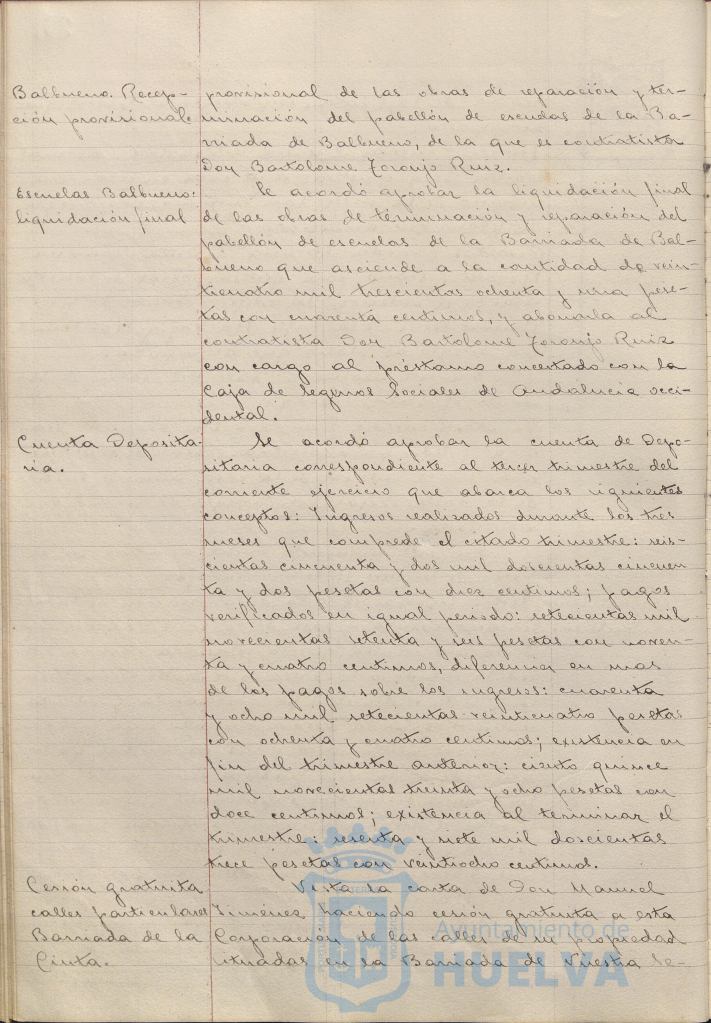 Balbueno. Recep-
ción provisional.
provisional de las obras de reparación y ter-
minación del pabellón de escuelas de la Ba-
rriada de Balbueno, de la que es contratista
Don Bartolome Toronjo Ruiz.
Escuelas Balbueno:
liquidación final
Se acordó aprobar la liquidación final
de las obras de términación y reparación del
pabellón de escuelas de la Barriada de Bal-
bueno que asciende a la cantidad de vein-
ticuatro mil trescientas ochenta y una pese-
tas con cuarenta centimos, y abonarla al
contratista Don Bartolome Toronjo Ruiz
con cargo al préstamo concertado con la
Caja de Seguros Sociales de Andalucia occi-
dental.
Cuenta Deposita-
ria.
Se acordó aprobar la cuenta de Depo-
sitaria correspondiente al tercer trimestre del
corriente ejercicio que abarca los siguientes
conceptos: Ingresos realizados durante los tres
meses que comprede el estado trimestre: seis-
cientas cincuenta y dos mil doscientas cincuen-
ta y dos pesetas con diez centimos; pagos
verificados en igual periodo: setecientas mil
novecientas setenta y seis pesetas con noven-
ta y cuatro centimos, diferencia en mas
de los pagos sobre los ingresos: cuarenta
y ocho mil setecientas veinticuatro pesetas
con ochenta y cuatro centimos; existencia en
fin del trimestre anterior: ciento quince
mil novecientas treinta y ocho pesetas con
doce centimos; existencia al terminar el
trimestre: sesenta y siete mil doscientas
trece pesetas con veintiocho centimos.
Cesión gratuita
calles particulares
Barriada de la
Cinta.
Vista la carta de Don Manuel
Jiménez haciendo cesión gratuita a esta
Corporación de las calles de su propiedad
situadas en la Barriada de Nuestra Se-
Ayuntamiento de
HUELVA